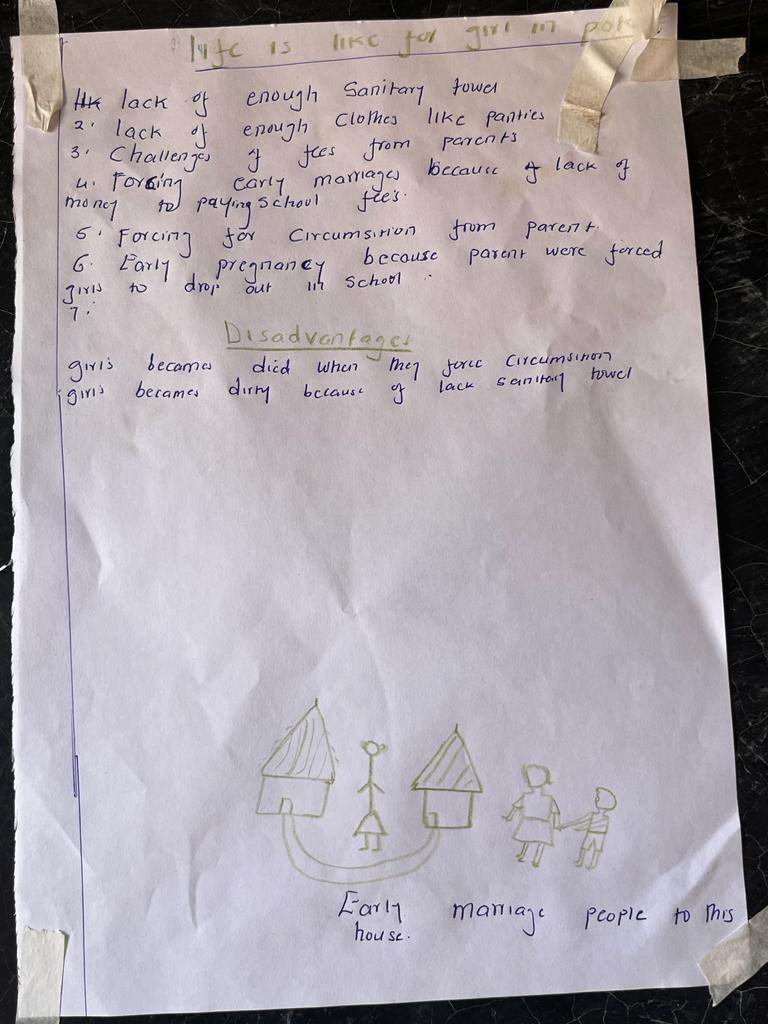 life is like for girl in pok
lack of enough Sanitary towel
2. lack of enough Clothes like panties
3. Challenges of fees from parents
4. Forcing early marriages because of lack of
money to paying School fees.
5. Forcing for Circumsirion from parent.
6. Early pregnancy because parent were forced
girls to drop out in School.
7.
Disadvantages
girls becames died when they force Circumsiron
girls becames dirty because of lack sanitary towel
Early marriage people to this
house.